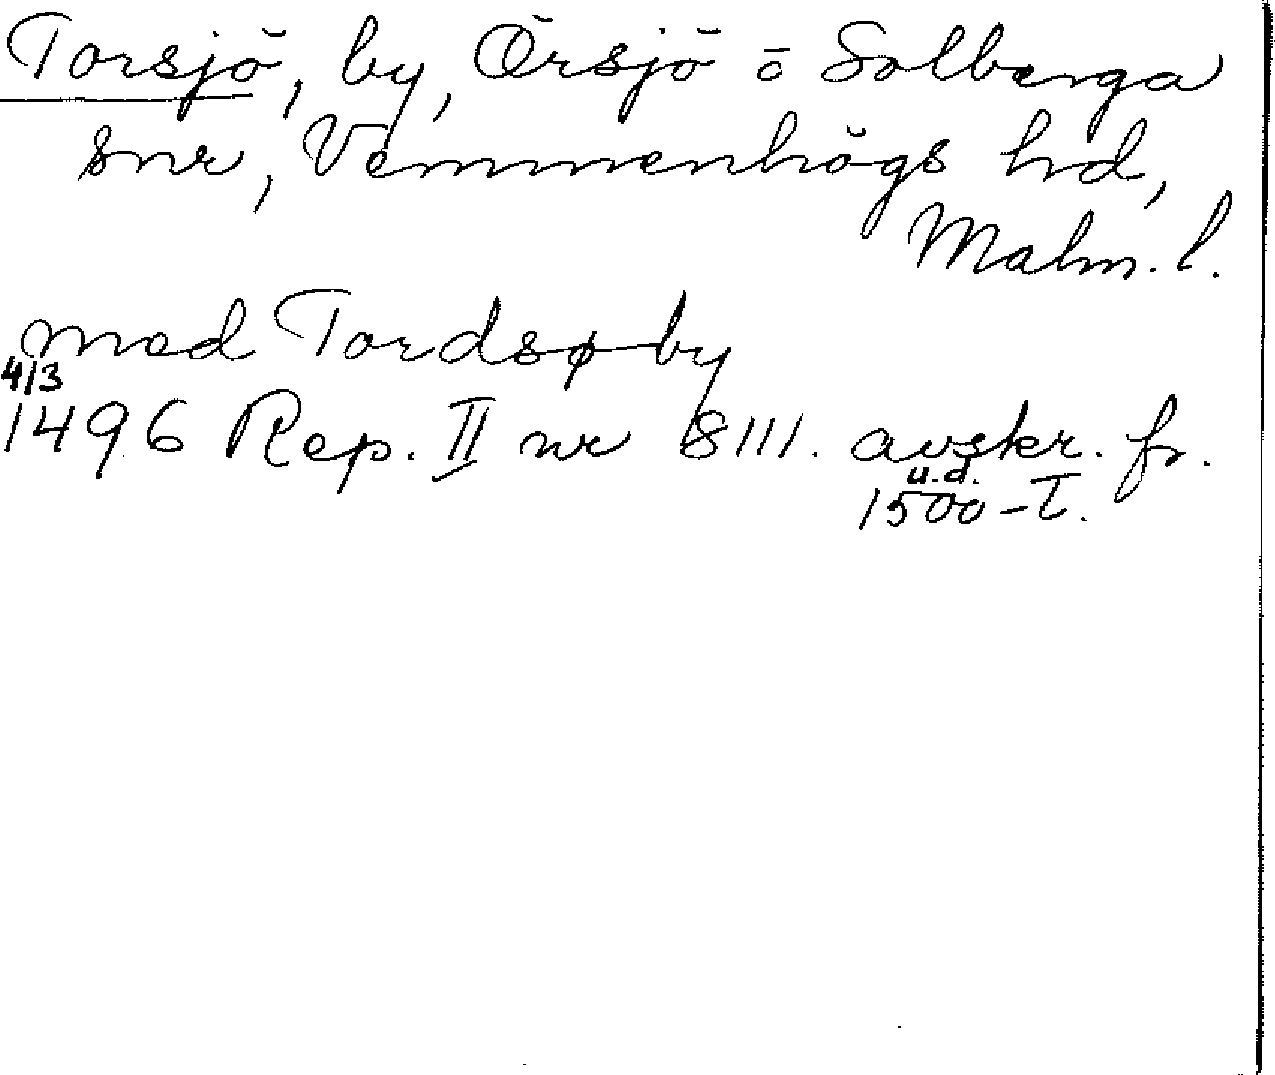 Torsjö, by, Örsjö o Solberga
snr, Vemmenhögs hd,
Malm. l.
med Tordsø by
4/3
1496 Rep. II nr 8111. avskr. fr.
u.d.
1500-t.